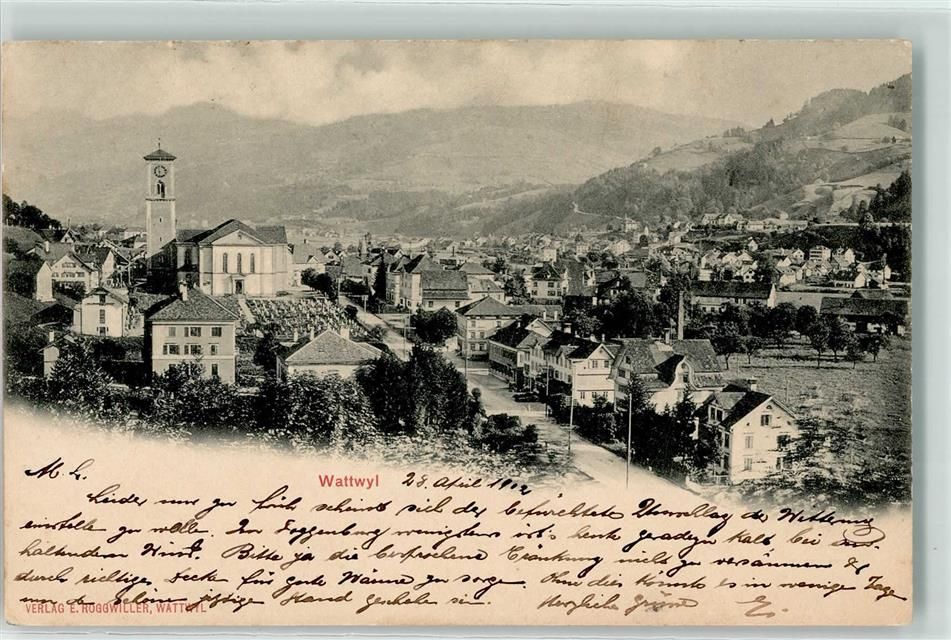 Wattwyl
28. April 1902
M. L.
Leider nur zu früh scheint sich der befürchtete Umschlag der Witterung
einstellen zu wollen. Im Toggenburg wenigstens ist's heute geradezu kalt bei
haltendem Wind. Bitte ja die versprochene Tränkung nicht zu versäumen &
durch richtige Decke für gute Wärme zu sorgen. Ohne dies könnte es in wenige Tage
um den schöne Hand geschehen sein. Herzliche Grüsse E.
VERLAG E. ROGGWILLER, WATTWYL